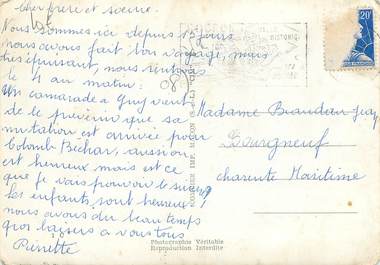 Cher frère et soeur.
Nous sommes ici depuis 15 jours
nous avons fait bon voyage, mais
épuisant, nous rentrons
le 4 au matin.
Un camarade a Guy vient
de le prévenir que sa
mutation est arrivée pour
Colomb Bechar, aussi on
est heureux mais est ce
que je vais pouvoir le suivre
les enfants sont heureux!
nous avons du beau temps
gros baisers a vous tous
Pierrette
20F
HISTORIQUE
COMBIER IMP. MACON (S.-&-L.)
Madame Braudeau Jean
Bourgneuf
Charente Maritime
Photographie Véritable
Reproduction Interdite